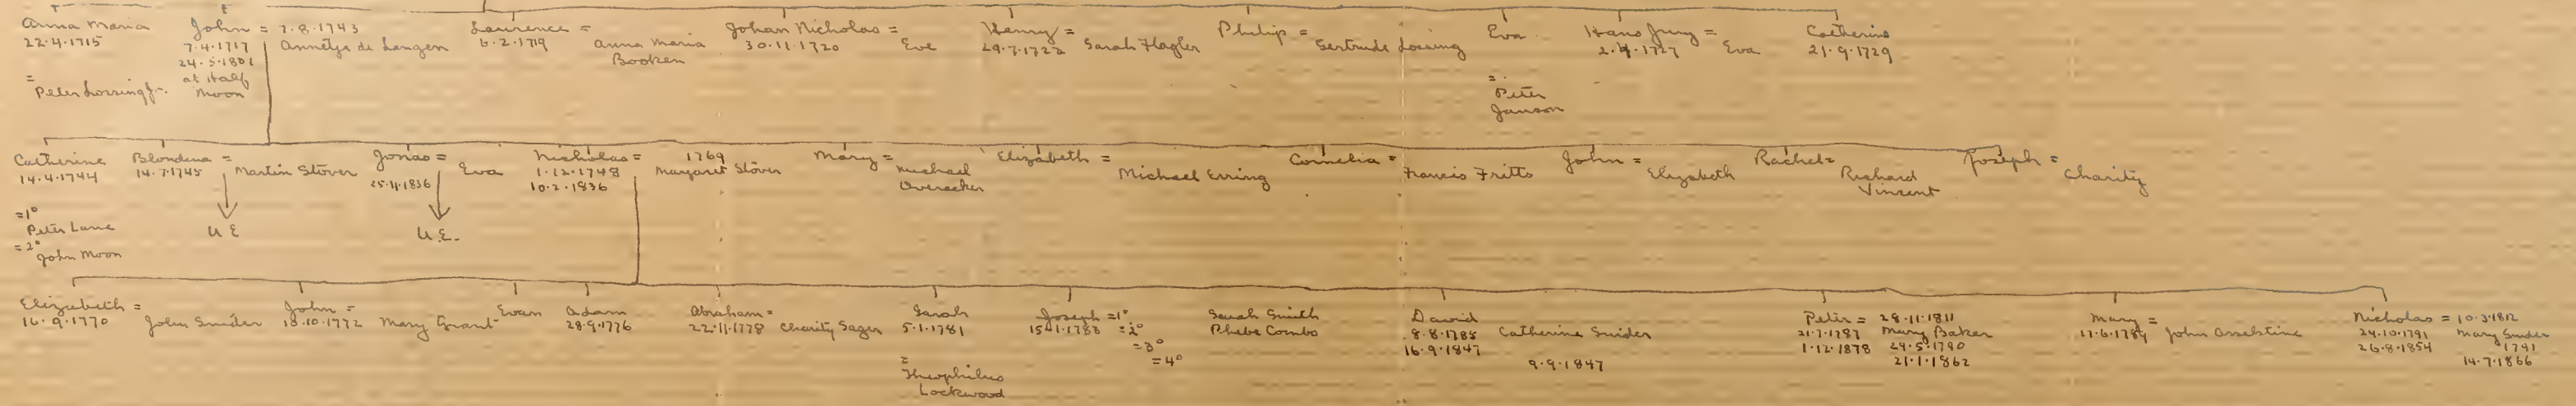 Anna Maria
22.4.1715
=
Peter Lossing Jr.
John = 7.8.1743
7.4.1717 Annetje de Langen
24.5.1801
at Half
Moon
Laurence =
6.2.1719 Anna Maria
Booken
Johan Nicholas =
30.11.1720 Eve
Henry =
29.7.1722 Sarah Flagler
Philip =
Gertrude Lossing
Eva
=
Peter
Janson
Hans Jury =
2.4.1727 Eva
Catherine
21.9.1729
Catherine
14.4.1744
=1°
Peter Lane
=2°
John Moon
Blondina =
14.7.1745 Martin Stover
U E
Jonas =
25.11.1836 Eva
U.E.
Nicholas = 1769
1.12.1748 Margaret Stover
10.2.1836
Mary =
Michael
Overacker
Elizabeth =
Michael Erring
Cornelia =
Francis Fritts
John =
Elizabeth
Rachel =
Richard
Vincent
Joseph =
Charity
Elizabeth =
16.9.1770 John Snider
John =
18.10.1772 Mary Grant
Evan
Adam
28.9.1776
Abraham =
22.11.1778 Charity Sager
Sarah
5.1.1781
=
Theophilus
Lockwood
Joseph =1° Sarah Smith
15.1.1783 =2° Phebe Combs
=3°
=4°
David
8.8.1785 Catherine Snider
16.9.1847
9.9.1847
Peter = 28.11.1811
21.7.1787 Mary Baker
1.12.1878 29.5.1790
21.1.1862
Mary =
17.6.1789 John Asselstine
Nicholas = 10.3.1812
24.10.1791 Mary Snider
26.8.1854 1791
14.7.1866